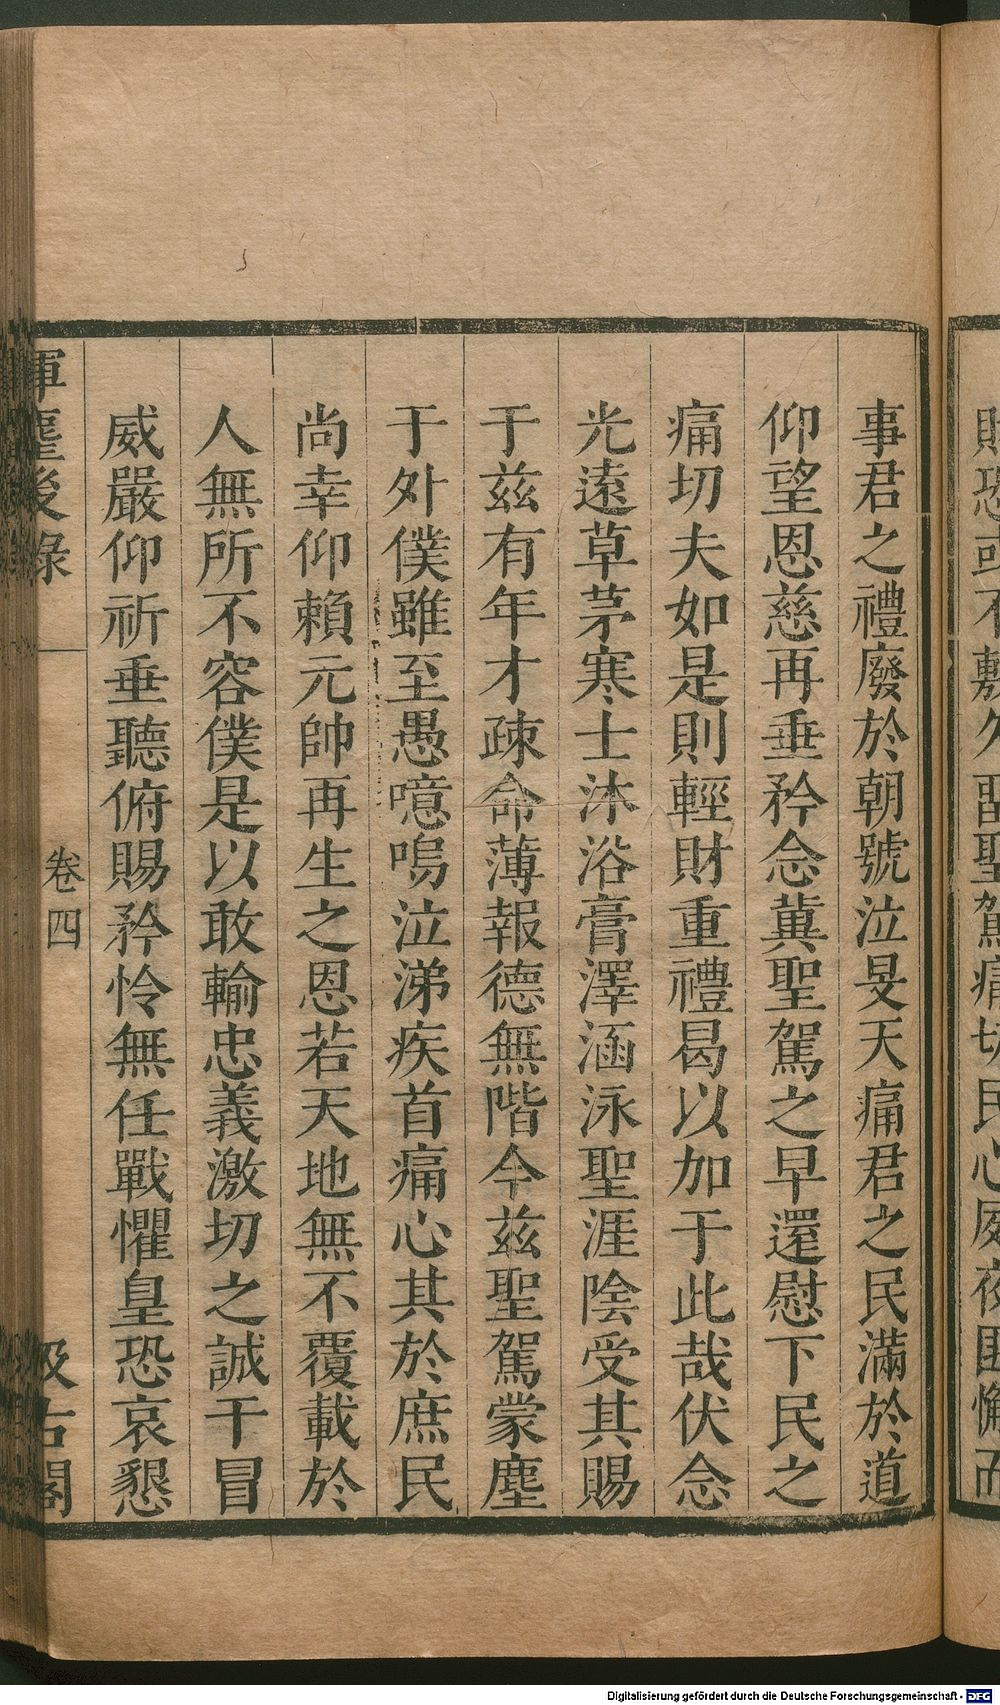 財恐或不敷久留聖駕痛切民心夙夜匪懈而
事君之禮廢於朝號泣旻天痛君之民滿於道
仰望恩慈再垂矜念冀聖駕之早還慰下民之
痛切夫如是則輕財重禮曷以加于此哉伏念
光遠草茅寒士沐浴膏澤涵泳聖涯陰受其賜
于茲有年才疎命薄報德無階今茲聖駕蒙塵
于外僕雖至愚噫嗚泣涕疾首痛心其於庶民
尚幸仰賴元帥再生之恩若天地無不覆載於
人無所不容僕是以敢輸忠義激切之誠干冒
威嚴仰祈垂聽俯賜矜怜無任戰懼皇恐哀懇
揮麈後錄
卷四
汲古閣
Digitalisierung gefördert durch die Deutsche Forschungsgemeinschaft - DFG